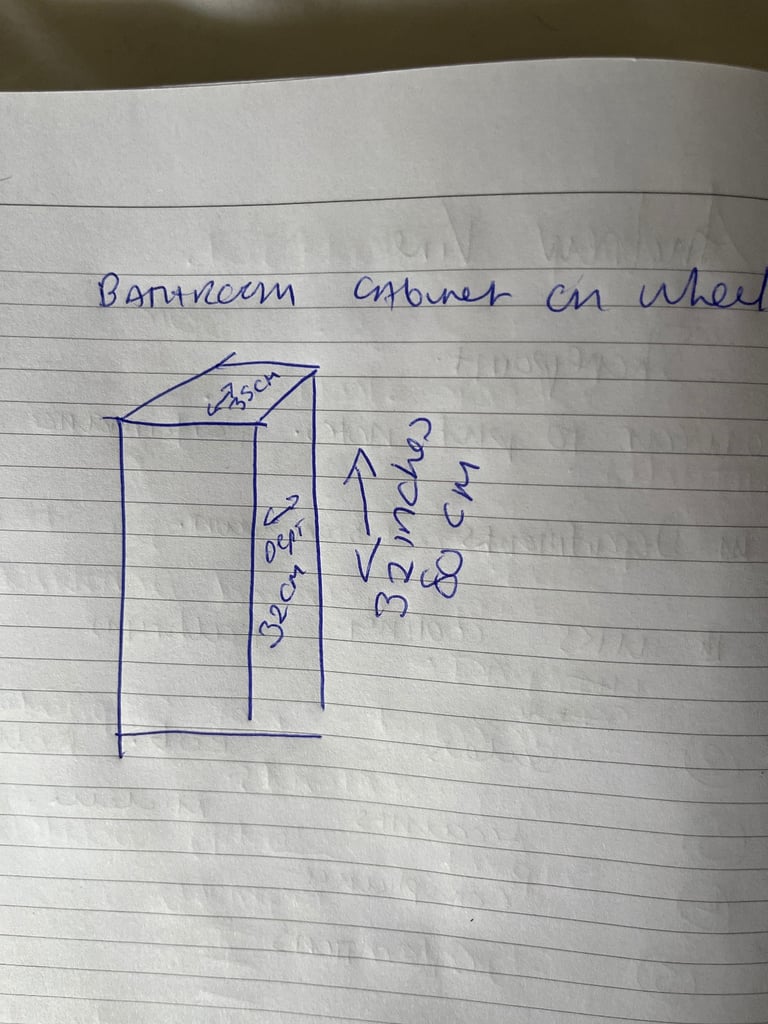 BATHROOM CABINET ON Wheel
35CM
32 inches
80 cm
DEPT
32cm